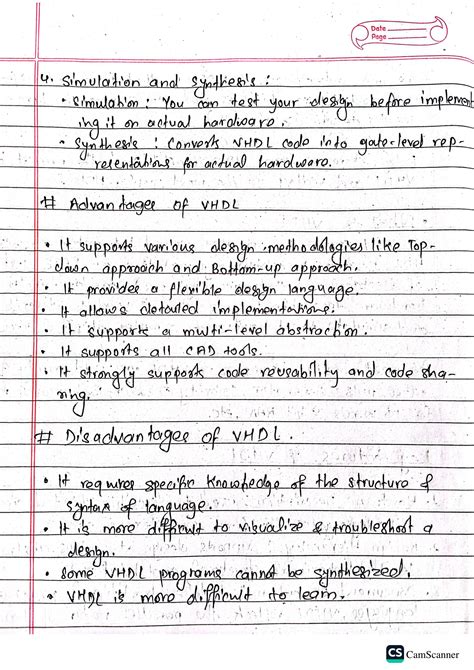 Date
Page
4. Simulation and Synthesis :
• Simulation : You can test your design before implement
ing it on actual hardware.
• Synthesis : Converts VHDL code into gate-level rep-
resentations for actual hardware.
# Advantages of VHDL
• It supports various design methodologies like Top-
down approach and Bottom-up approach.
• It provides a flexible design language.
• It allows detailed implementations.
• It supports a multi-level abstraction.
• It supports all CAD tools.
• It strongly supports code reusability and code sha-
ring.
# Disadvantages of VHDL.
• It requires specific knowledge of the structure &
syntax of language.
• It is more difficult to visualize & troubleshoot a
design.
• Some VHDL programs cannot be synthesized.
• VHDL is more difficult to learn.
CS CamScanner